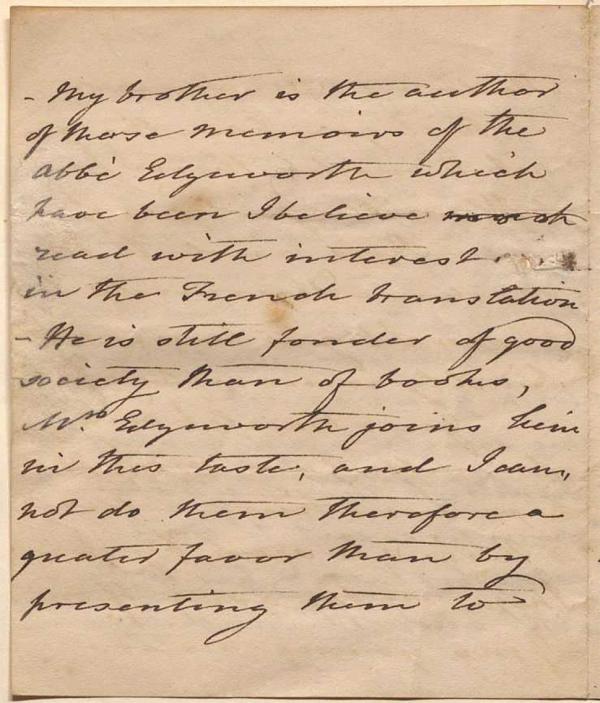 - My brother is the author
of those memoirs of the
abbé Edgeworth which
have been I believe much
read with interest.
in the French translation
- He is still fonder of good
society than of books,
Mrs. Edgeworth joins him
in this taste, and I can,
not do them therefore a
greater favor than by
presenting them to